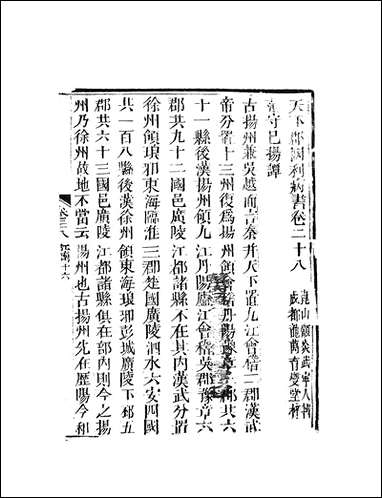 天下郡國利病書卷二十八
崑山顧炎武寧人輯
成都龍萬育燮堂校
蔣守巳揚譚
古揚州兼吳越而言秦并天下置九江會稽二郡漢武
帝分置十三州復爲揚州領會稽丹陽豫章
郡共六
十一縣後漢揚州領九江丹陽廬江會稽吳郡豫章六
郡共九十二國邑廣陵江都諸縣不在其内漢武分置
徐州領琅邪東海臨淮三郡楚國廣陵泗水六安四國
共一百八縣後漢徐州領東海琅邪彭城廣陵下邳五
郡共六十三國邑廣陵江都諸縣俱在部内則今之揚
州乃徐州故地不當云揚州也古揚州先在歷陽今和
卷二十八 江南十六